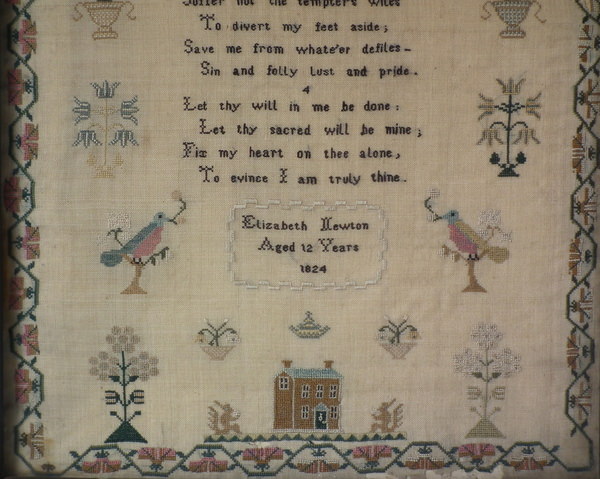 Suffer not the tempter's wiles
To divert my feet aside;
Save me from whate'er defiles-
Sin and folly lust and pride.
4
Let thy will in me be done:
Let thy sacred will be mine;
Fix my heart on thee alone,
To evince I am truly thine.
Elizabeth Newton
Aged 12 Years
1824